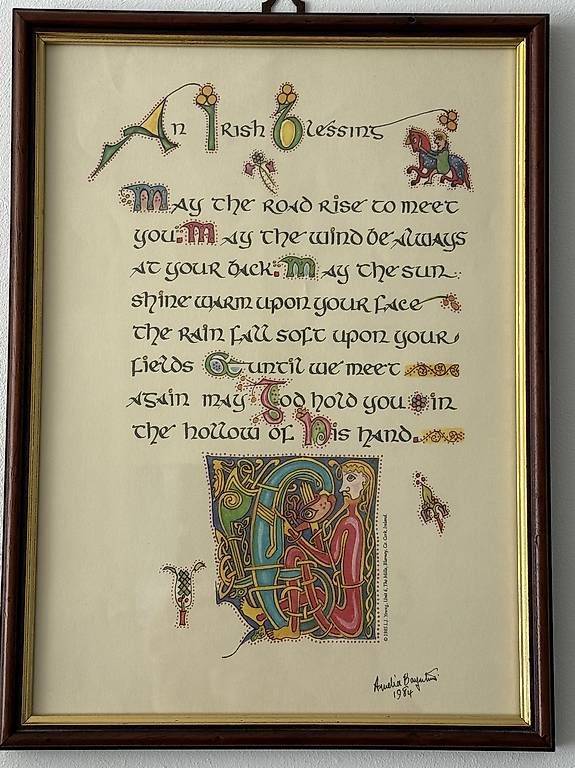 An Irish Blessing
May the road rise to meet
you. May the wind be always
at your back. May the sun
shine warm upon your face
the rain fall soft upon your
fields & until we meet
again may God hold you in
the hollow of His hand.
© 1985 I.J. Young, Unit 6, The Mills, Blarney, Co. Cork, Ireland.
1984